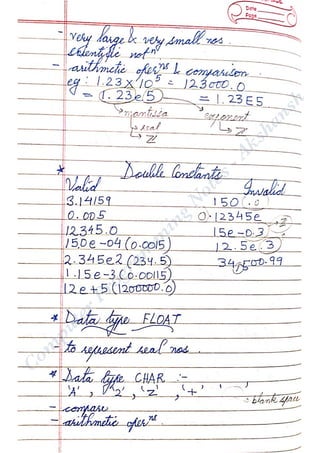 Date
Page
- very large & very small nos.
scientific notⁿ
- arithmetic operⁿˢ & comparison
eg : 1.23 x 10⁵ = 123000.0
= 1.23e5 = 1.23E5
mantissa exponent
real Z
Z
* Double Constants
Valid Invalid
3.14159 150
0.005 0.12345e
12345.0 15e-0.3
15.0e-04 (0.0015) 12.5e.3
2.345e2 (234.5) 34,500.99
1.15e-3 (0.00115)
12e+5 (1200000.0)
* Data type FLOAT
- to represent real nos.
* Data type CHAR :-
'A', '2', 'Z', '+', ' '
: blank space
- compare
- arithmetic operⁿˢ.
Computer Programming Notes - Akshansh